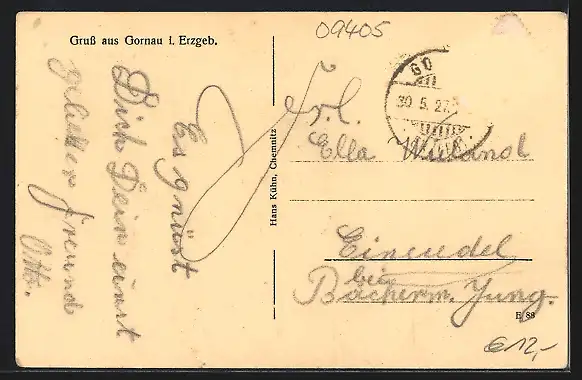 09405
Gruß aus Gornau i. Erzgeb.
GO
30.5.27
Es grüst
Dich Dein einst
Freund
Otto.
Hans Kühn, Chemnitz
Frl.
Ella
Einsiedel
bei
Bäckerm. Jung.
E 88
€12,-